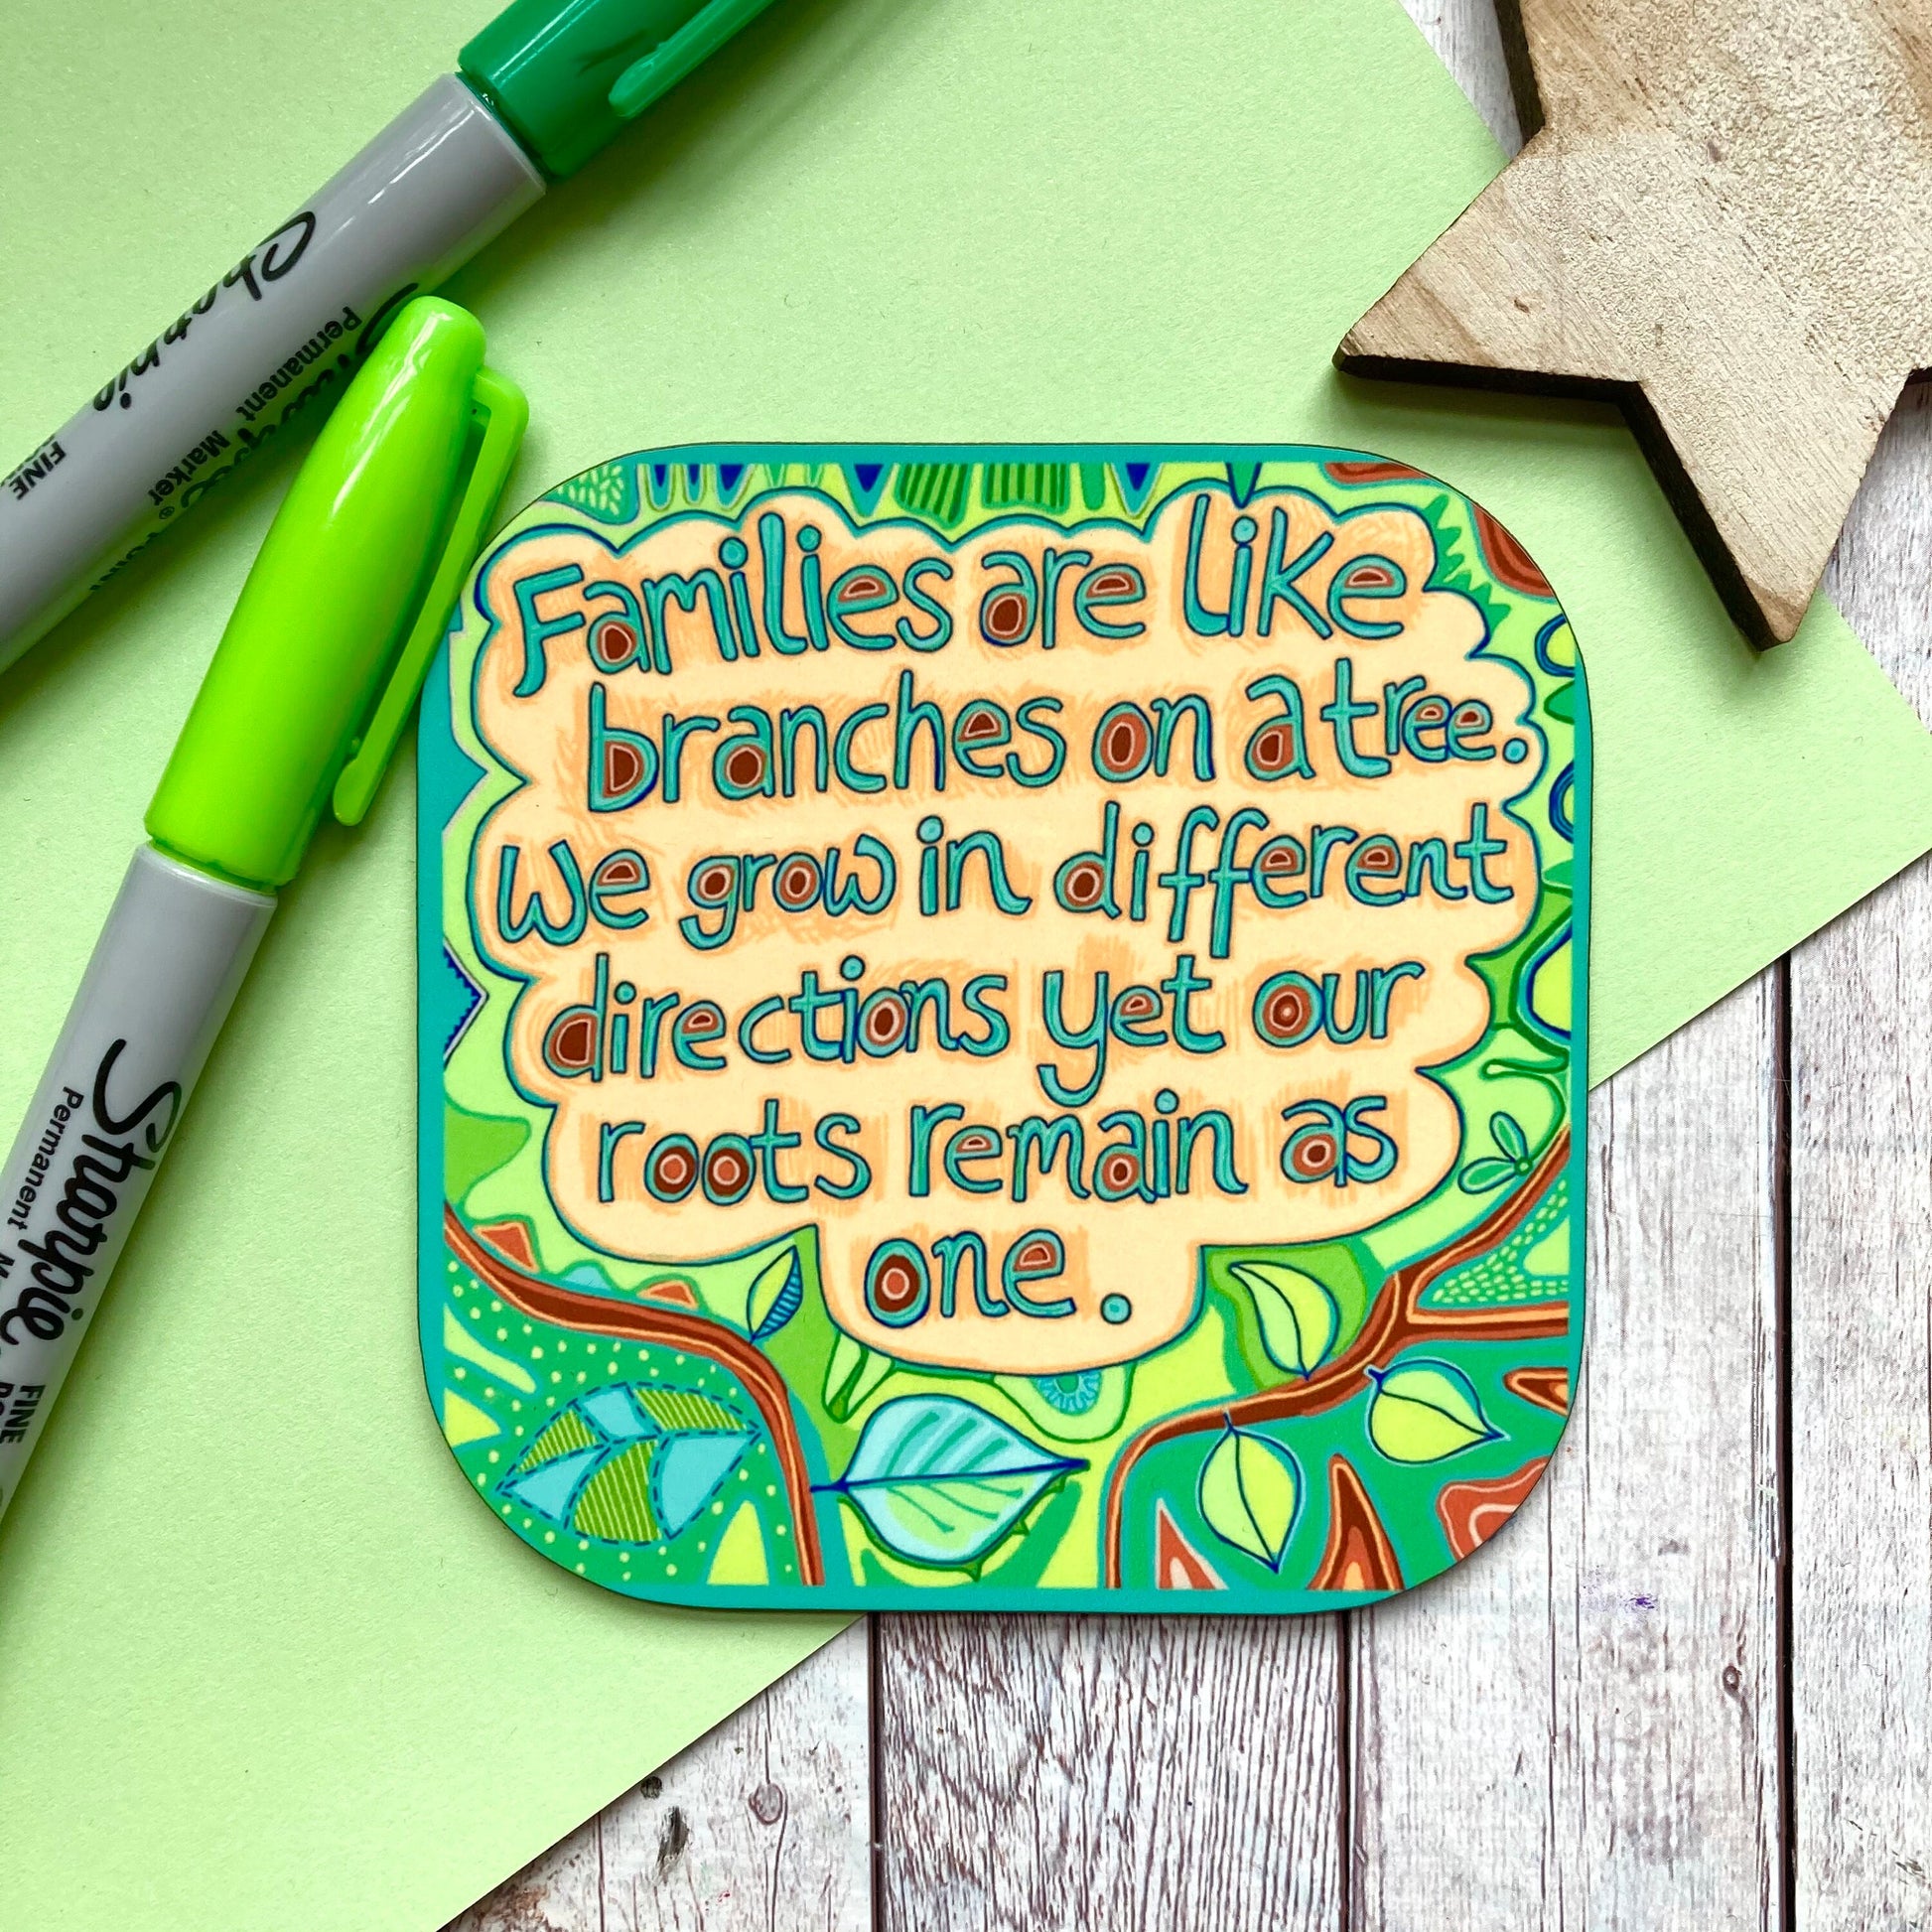 Families are like
branches on a tree.
We grow in different
directions yet our
roots remain as
one.
Sharpie
Permanent Marker®
FINE
Sharpie
Permanent
FINE